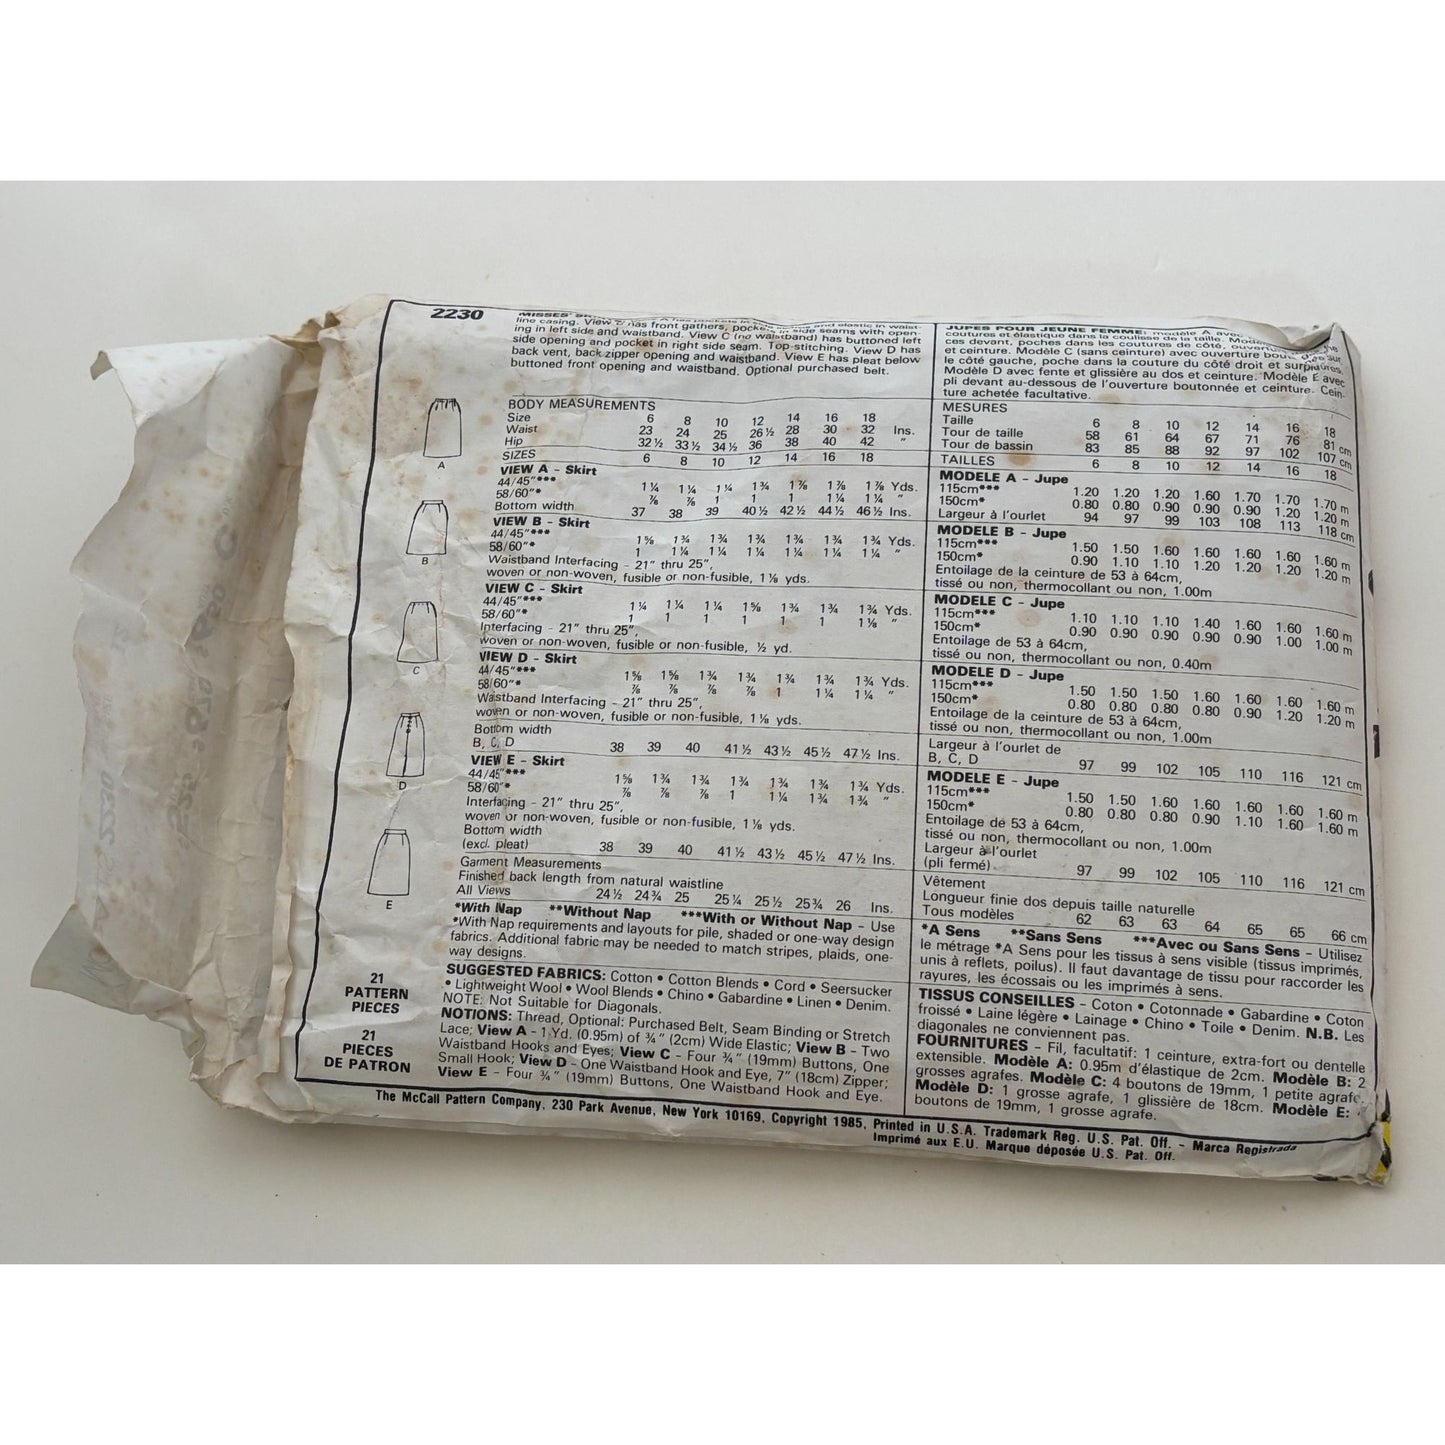 2230
MISSES'
line casing. View B has front gathers, pockets and elastic in waist-
ing in left side and waistband. View C (no waistband) has buttoned left
side opening and pocket in right side seam. Top-stitching. View D has
back vent, back zipper opening and waistband. View E has pleat below
buttoned front opening and waistband. Optional purchased belt.
BODY MEASUREMENTS
Size 6 8 10 12 14 16 18
Waist 23 24 25 26½ 28 30 32 Ins.
Hip 32½ 33½ 34½ 36 38 40 42 "
SIZES 6 8 10 12 14 16 18
VIEW A - Skirt
44/45"*** 1¼ 1¼ 1¼ 1¾ 1⅞ 1⅞ 1⅞ Yds.
58/60"* ⅞ ⅞ 1 1 1 1¼ 1¼ "
Bottom width 37 38 39 40½ 42½ 44½ 46½ Ins.
VIEW B - Skirt
44/45"*** 1⅝ 1¾ 1¾ 1¾ 1¾ 1¾ 1¾ Yds.
58/60"* 1 1¼ 1¼ 1¼ 1¼ 1¼ 1¼ "
Waistband Interfacing - 21" thru 25",
woven or non-woven, fusible or non-fusible, 1⅛ yds.
VIEW C - Skirt
44/45"*** 1¼ 1¼ 1¼ 1⅝ 1¾ 1¾ 1¾ Yds.
58/60"* 1 1 1 1 1 1 1⅛ "
Interfacing - 21" thru 25",
woven or non-woven, fusible or non-fusible, ½ yd.
VIEW D - Skirt
44/45"*** 1⅝ 1⅝ 1¾ 1¾ 1¾ 1¾ 1¾ Yds.
58/60"* ⅞ ⅞ ⅞ ⅞ 1 1¼ 1¼ "
Waistband Interfacing - 21" thru 25",
woven or non-woven, fusible or non-fusible, 1⅛ yds.
Bottom width
B, C, D 38 39 40 41½ 43½ 45½ 47½ Ins.
VIEW E - Skirt
44/45"*** 1⅝ 1¾ 1¾ 1¾ 1¾ 1¾ 1¾ Yds.
58/60"* ⅞ ⅞ ⅞ 1 1¼ 1¾ 1¾ "
Interfacing - 21" thru 25",
woven or non-woven, fusible or non-fusible, 1⅛ yds.
Bottom width
(excl. pleat) 38 39 40 41½ 43½ 45½ 47½ Ins.
Garment Measurements
Finished back length from natural waistline
All Views 24½ 24¾ 25 25¼ 25½ 25¾ 26 Ins.
*With Nap **Without Nap ***With or Without Nap - Use
*With Nap requirements and layouts for pile, shaded or one-way design
fabrics. Additional fabric may be needed to match stripes, plaids, one-
way designs.
SUGGESTED FABRICS: Cotton • Cotton Blends • Cord • Seersucker
• Lightweight Wool • Wool Blends • Chino • Gabardine • Linen • Denim.
NOTE: Not Suitable for Diagonals.
NOTIONS: Thread, Optional: Purchased Belt, Seam Binding or Stretch
Lace; View A - 1 Yd. (0.95m) of ¾" (2cm) Wide Elastic; View B - Two
Waistband Hooks and Eyes; View C - Four ¾" (19mm) Buttons, One
Small Hook; View D - One Waistband Hook and Eye, 7" (18cm) Zipper;
View E - Four ¾" (19mm) Buttons, One Waistband Hook and Eye.
A
B
C
D
E
21
PATTERN
PIECES
21
PIECES
DE PATRON
JUPES POUR JEUNE FEMME: modèle A avec
coutures et élastique dans la coulisse de la taille.
ces devant, poches dans les coutures de côté, ouverture
et ceinture. Modèle C (sans ceinture) avec ouverture sur
le côté gauche, poche dans la couture du côté droit et surpiqûres.
Modèle D avec fente et glissière au dos et ceinture. Modèle E avec
pli devant au-dessous de l'ouverture boutonnée et ceinture. Cein-
ture achetée facultative.
MESURES
Taille 6 8 10 12 14 16 18
Tour de taille 58 61 64 67 71 76 81 cm
Tour de bassin 83 85 88 92 97 102 107 cm
TAILLES 6 8 10 12 14 16 18
MODELE A - Jupe
115cm*** 1.20 1.20 1.20 1.60 1.70 1.70 1.70 m
150cm* 0.80 0.80 0.90 0.90 0.90 1.20 1.20 m
Largeur à l'ourlet 94 97 99 103 108 113 118 cm
MODELE B - Jupe
115cm*** 1.50 1.50 1.60 1.60 1.60 1.60 1.60 m
150cm* 0.90 1.10 1.10 1.20 1.20 1.20 1.20 m
Entoilage de la ceinture de 53 à 64cm,
tissé ou non, thermocollant ou non, 1.00m
MODELE C - Jupe
115cm*** 1.10 1.10 1.10 1.40 1.60 1.60 1.60 m
150cm* 0.90 0.90 0.90 0.90 0.90 1.00 1.00 m
Entoilage de 53 à 64cm,
tissé ou non, thermocollant ou non, 0.40m
MODELE D - Jupe
115cm*** 1.50 1.50 1.50 1.60 1.60 1.60 1.60 m
150cm* 0.80 0.80 0.80 0.80 0.90 1.20 1.20 m
Entoilage de la ceinture de 53 à 64cm,
tissé ou non, thermocollant ou non, 1.00m
Largeur à l'ourlet de
B, C, D 97 99 102 105 110 116 121 cm
MODELE E - Jupe
115cm*** 1.50 1.50 1.60 1.60 1.60 1.60 1.60 m
150cm* 0.80 0.80 0.80 0.90 1.10 1.60 1.60 m
Entoilage de 53 à 64cm,
tissé ou non, thermocollant ou non, 1.00m
Largeur à l'ourlet
(pli fermé) 97 99 102 105 110 116 121 cm
Vêtement
Longueur finie dos depuis taille naturelle
Tous modèles 62 63 63 64 65 65 66 cm
*A Sens **Sans Sens ***Avec ou Sans Sens - Utilisez
le métrage *A Sens pour les tissus à sens visible (tissus imprimés,
unis à reflets, poilus). Il faut davantage de tissu pour raccorder les
rayures, les écossais ou les imprimés à sens.
TISSUS CONSEILLES - Coton • Cotonnade • Gabardine • Coton
froissé • Laine légère • Lainage • Chino • Toile • Denim. N.B. Les
diagonales ne conviennent pas.
FOURNITURES - Fil, facultatif: 1 ceinture, extra-fort ou dentelle
extensible. Modèle A: 0.95m d'élastique de 2cm. Modèle B: 2
grosses agrafes. Modèle C: 4 boutons de 19mm, 1 petite agrafe.
Modèle D: 1 grosse agrafe, 1 glissière de 18cm. Modèle E:
boutons de 19mm, 1 grosse agrafe.
The McCall Pattern Company, 230 Park Avenue, New York 10169, Copyright 1985, Printed in U.S.A. Trademark Reg. U.S. Pat. Off. - Marca Registrada
Imprimé aux E.U. Marque déposée U.S. Pat. Off.